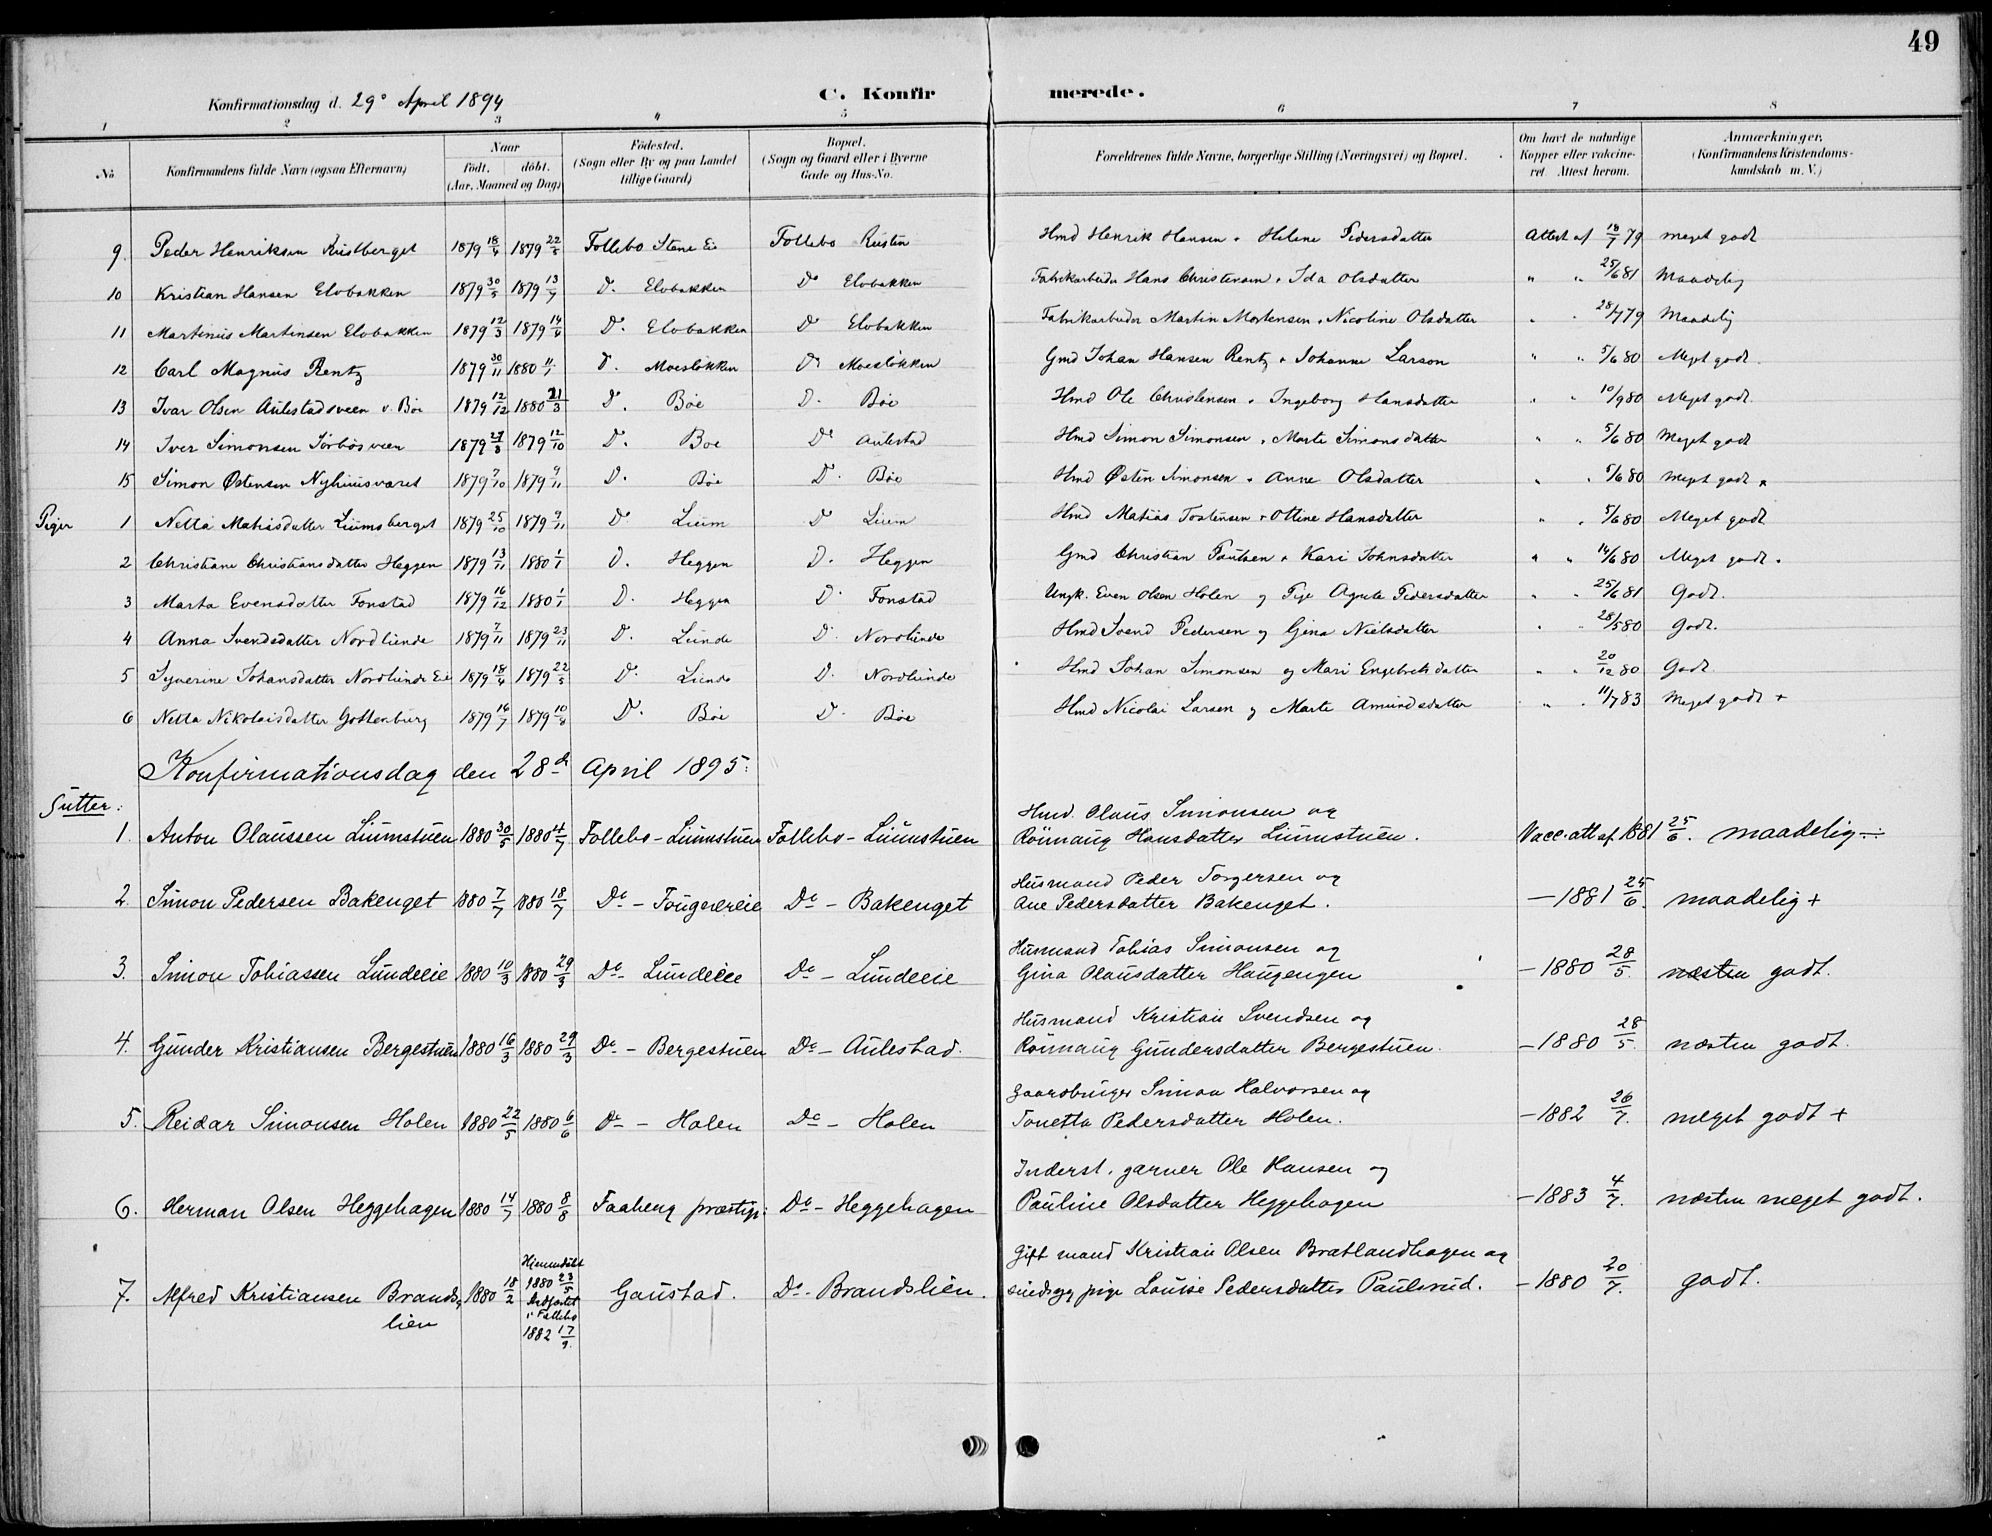 49
Konfirmationsdag d. 29º April 1894
C. Konfir merede.
1 2 3 4 5 6 7 8
No
Konfirmandens fulde Navn (ogsaa Efternavn)
Naar
født. døbt.
(Aar, Maaned og Dag)
Fødested.
(Sogn eller By og paa Landet
tillige Gaard)
Bopæl.
(Sogn og Gaard eller i Byerne
Gade og Hus-No.
Forældrenes fulde Navne, borgerlige Stilling (Næringsvei) og Bopæl.
Om havt de naturlige
Kopper eller vakcine-
ret Attest herom.
Anmærkninger.
(Konfirmandens Kristendoms-
kundskab m. V.)
9. Peder Henriksen Rustberget 1879 18/4 1879 22/5 Follebo Stene Ei Follebo Rusten Hmd Henrik Hansen + Helene Pedersdatter Attest af 18/7 79 meget godt
10 Kristian Hansen Elvbakken 1879 30/5 1879 13/7 Dº Elvbakken Dº Elvbakken Fabrikarbeider Hans Christensen + Ida Olsdatter " " 25/6 81 Maadelig
11 Martinius Martinsen Elvbakken 1879 12/3 1879 14/4 Dº Elvbakken Dº Elvbakken Fabrikarbeider Martin Mortensen + Nicoline Olsdatter " " 28/7 79 Maadelig
12 Carl Magnus Rentz 1879 30/11 1880 11/1 Dº Moesløkken Dº Moesløkken Gmd Johan Hansen Rentz + Johanne Larson " " 5/6 80 Meget godt.
13 Ivar Olsen Aulestadsveen v. Bøe 1879 12/12 1880 21/3 Dº Bøe Dº Bøe Hmd Ole Christensen + Ingeborg Hansdatter " " 10/9 80 Meget godt.
14 Iver Simonsen Sørbøsveen 1879 29/8 1879 12/10 Dº Bøe Dº Aulestad Hmd Simon Simonsen + Marte Simonsdatter " " 5/6 80 Meget godt
15 Simon Østensen Nyhuusværet 1879 7/10 1879 9/11 Dº Bøe Dº Bøe Hmd Østen Simonsen + Anne Olsdatter " " 5/6 80 Meget godt
Piger 1 Netta Matiasdatter Liumsberget 1879 25/10 1879 9/11 Dº Lium Dº Lium Hmd Matias Tostensen + Ottine Hansdatter " " 5/6 80 Meget godt
2 Christiane Christiansdatter Heggen 1879 13/11 1880 1/1 Dº Heggen Dº Heggen Gmd Christian Paulsen + Kari Johnsdatter " " 14/6 80 Meget godt.
3 Marta Evensdatter Fonstad 1879 16/12 1880 1/1 Dº Heggen Dº Fonstad Ungk. Even Olsen Holen og Pige Agnete Pedersdatter " " 25/6 81 Godt.
4 Anna Svendsdatter Nordlunde 1879 7/11 1879 23/11 Dº Lunde Dº Nordlunde Hmd Svend Pedersen og Gina Nielsdatter " " 28/5 80 Godt.
5 Syverine Johansdatter Nordlunde Eie 1879 18/4 1879 22/5 Dº Lunde Dº Nordlunde Hmd Johan Simonsen og Mari Engebretsdatter " " 20/12 80 Godt
6 Netta Nikolaisdatter Gottenburg 1879 16/7 1879 10/4 Dº Bøe Dº Bøe Hmd Nicolai Larsen og Marte Amundsdatter " " 11/7 83 Meget godt +
Konfirmationsdag den 28de April 1895.
Gutter:
Hmd. Olaus Simonsen og
1. Anton Olaussen Liumstuen 1880 30/5 1880 4/7 Follebo - Liumstuen Follebo - Liumstuen Rønnaug Hansdatter Liumstuen. Vacc. att af 1881 25/6. maadelig ÷
Husmand Peder Torgersen og
2. Simon Pedersen Bakenget 1880 7/7 1880 18/7 Do - Fougnereie Do - Bakenget Ane Pedersdatter Bakenget. - 1881 25/6. maadelig +
Husmand Tobias Simonsen og
3. Simon Tobiassen Lundeeie 1880 10/3 1880 29/3 Do - Lundeeie Do - Lundeeie Gina Olausdatter Haugengen - 1880 28/5. næsten godt.
Husmand Kristian Svendsen og
4. Gunder Kristiansen Bergestuen 1880 16/3 1880 29/3 Do - Bergestuen Do - Aulestad. Rønnaug Gundersdatter Bergestuen. - 1880 28/5. næsten godt.
Gaardbruger Simon Halvorsen og
5. Reidar Simonsen Holen 1880 22/5 1880 6/6 Do - Holen Do - Holen Tonetta Pedersdatter Holen. - 1882 26/7. meget godt +
Inderst, garver Ole Hansen og
6. Herman Olsen Heggehagen 1880 14/7 1880 8/8 Faaberg præstgj: Do - Heggehagen Pauline Olsdatter Heggehagen - 1883 4/7. næsten meget godt.
Gift mand Kristian Olsen Bratlandhagen og
7. Alfred Kristiansen Brands- 1880 18/2 Hjemmedøbt 1880 23/5 Gaustad. Do - Brandslien. sindssyg pige Louise Pedersdatter Paulsrud. - 1880 20/7. godt.
lien
i Follebo
1882 17/9.